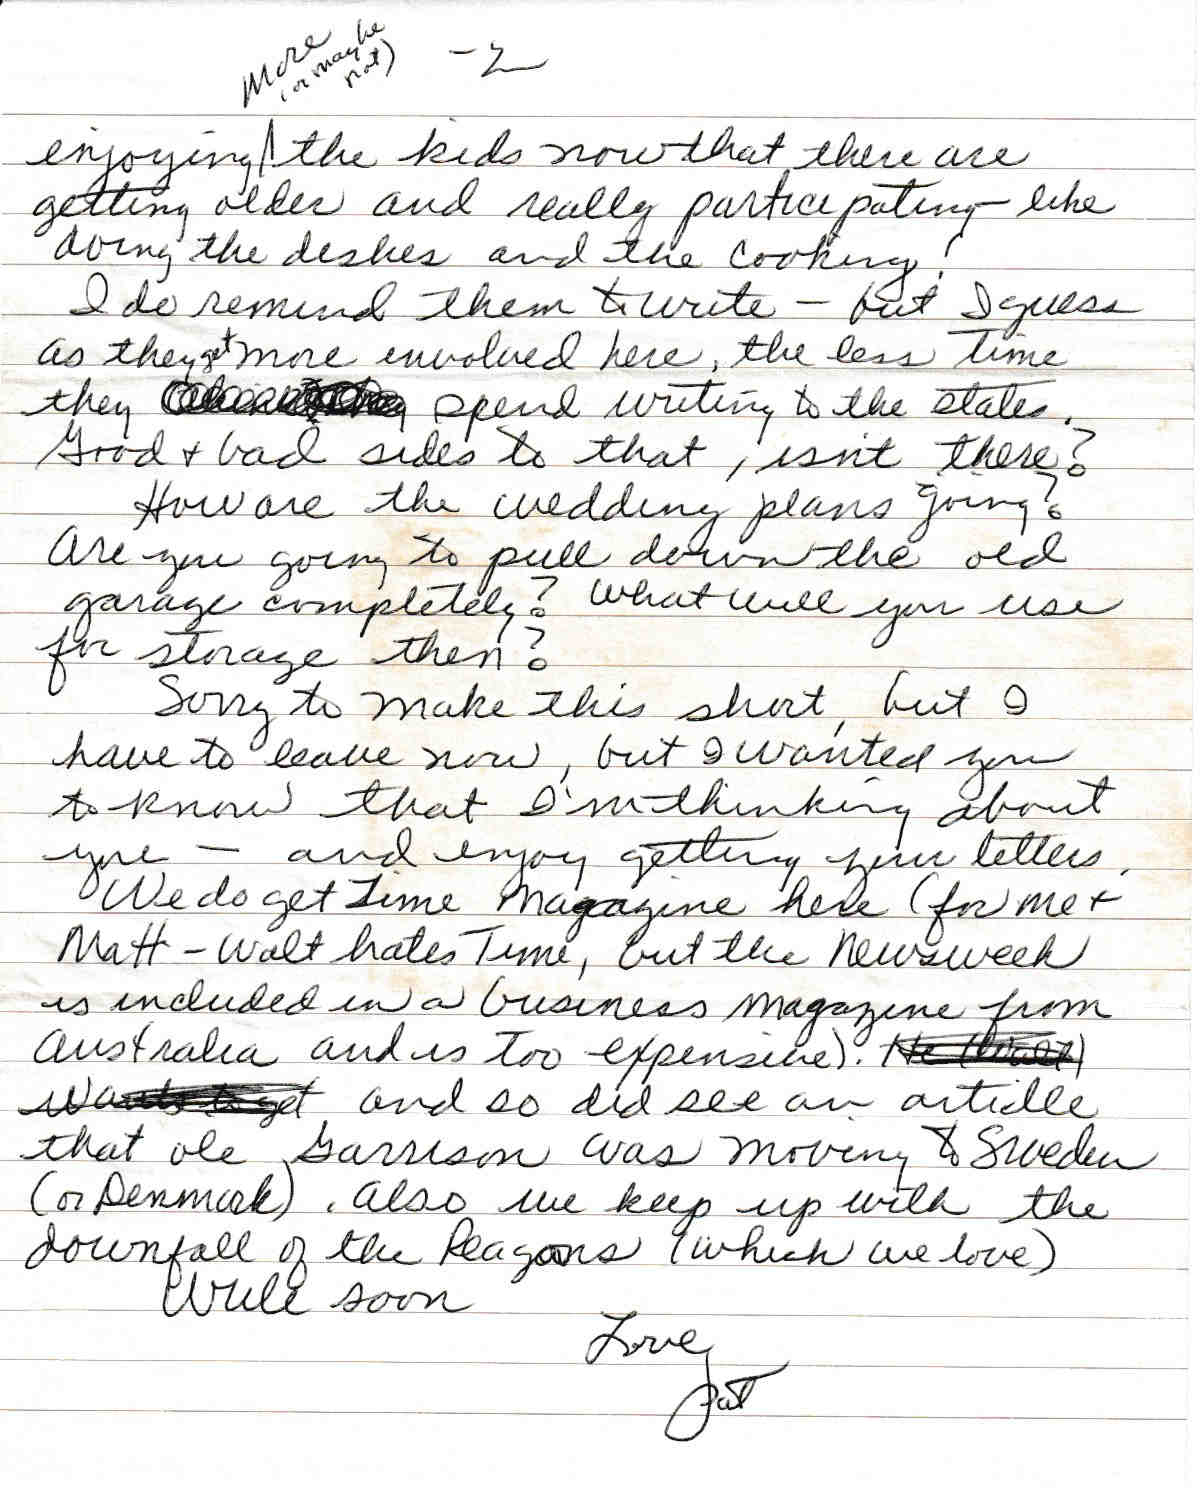 More
(or maybe
not)
-2
enjoying the kids now that there are
getting older and really participating - like
doing the dishes and the cooking!
I do remind them to write - but I guess
as they get more envolved here, the less time
they spend writing to the states.
Good + bad sides to that, isn't there?
How are the wedding plans going?
Are you going to pull down the old
garage completely? What will you use
for storage then?
Sorry to make this short, but I
have to leave now, but I wanted you
to know that I'm thinking about
you - and enjoy getting your letters.
We do get Time Magazine here (for me +
Matt - Walt hates Time, but the Newsweek
is included in a business magazine from
Australia and is too expensive). He (Walt)
wants to get and so did see an articlle
that ole Garrison was moving to Sweden
(or Denmark). Also we keep up with the
downfall of the Reagans (which we love)
Write soon
Love,
Pat